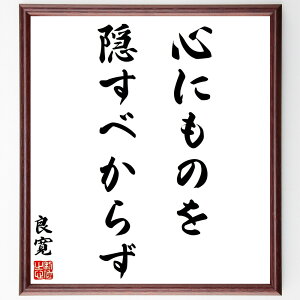 心にものを
隠すべからず
良寛